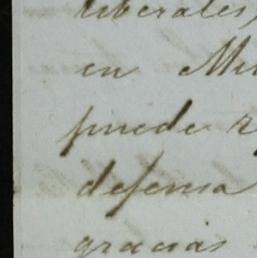 liberales,
en
puede
defensa
gracias